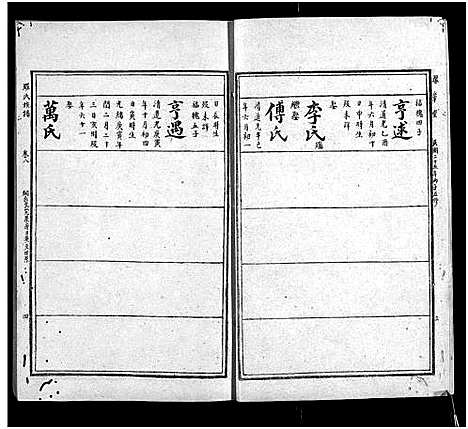 亨述
福穗四子
清道光乙酉
年六月初十
日申時生
歿未詳
娶
李氏
繼娶
傅氏
清道光辛巳
年六月初一
日辰時生
歿未詳
亨遇
福穗五子
清道光庚寅
年十月初四
日寅時生
光緒庚寅年
閏二月二十
三日寅時歿
年六十一
娶
萬氏
羅氏族譜
卷八
四